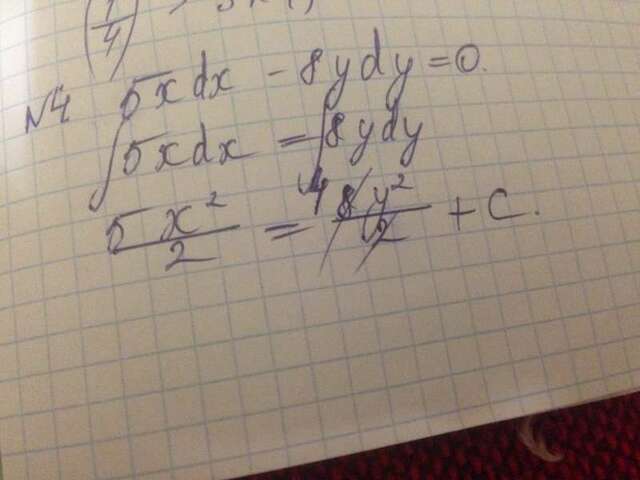 (1/4) >
№4 5xdx - 8ydy = 0.
∫5xdx = ∫8ydy
5x²/2 = 4 8y²/2 + C.